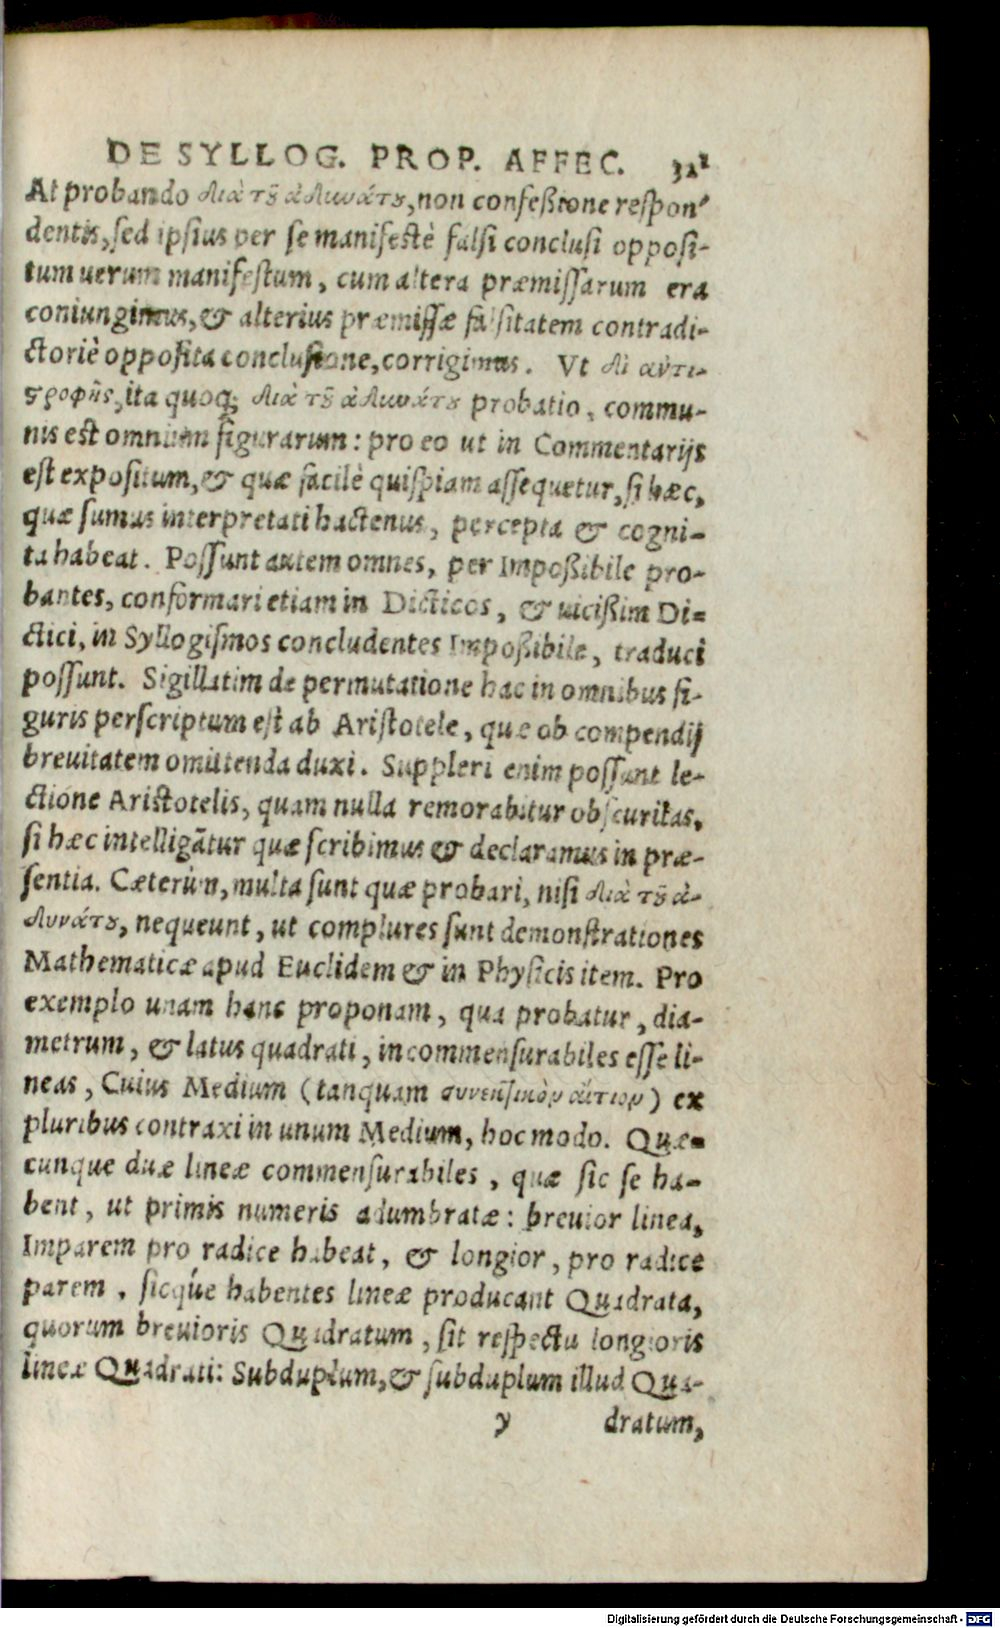 DE SYLLOG. PROP. AFFEC. 321
At probando διὰ τȣ̃ ἀδυνάτȣ, non confeßione reſpon-
dentis, ſed ipſius per ſe manifeſtè falſi concluſi oppoſi-
tum uerum manifeſtum, cum altera præmiſſarum era
coniungimus, & alterius præmiſſæ falſitatem contradi-
ctoriè oppoſita concluſione, corrigimus. Vt δι ἀντι-
ϛροφῆς, ita quoq; διὰ τȣ̃ ἀδυνάτȣ probatio, commu-
nis eſt omnium figurarum: pro eo ut in Commentarijs
eſt expoſitum, & quæ facilè quiſpiam aſſequetur, ſi hæc,
quæ ſumus interpretati hactenus, percepta & cogni-
ta habeat. Poſſunt autem omnes, per Impoßibile pro-
bantes, conformari etiam in Dicticos, & uicißim Di-
ctici, in Syllogiſmos concludentes Impoßibile, traduci
poſſunt. Sigillatim de permutatione hac in omnibus fi-
guris perſcriptum eſt ab Ariſtotele, quæ ob compendij
breuitatem omittenda duxi. Suppleri enim poſſunt le-
ctione Ariſtotelis, quam nulla remorabitur obſcuritas,
ſi hæc intelligãtur quæ ſcribimus & declaramus in præ-
ſentia. Cæterùm, multa ſunt quæ probari, niſi διὰ τȣ̃ ἀ-
δυνάτȣ, nequeunt, ut complures ſunt demonſtrationes
Mathematicæ apud Euclidem & in Phyſicis item. Pro
exemplo unam hanc proponam, qua probatur, dia-
metrum, & latus quadrati, incommenſurabiles eſſe li-
neas, Cuius Medium (tanquam συνεκτικὸν αἴτιον) ex
pluribus contraxi in unum Medium, hoc modo. Quæ-
cunque duæ lineæ commenſurabiles, quæ ſic ſe ha-
bent, ut primis numeris adumbratæ: breuior linea,
Imparem pro radice habeat, & longior, pro radice
parem, ſicq́ue habentes lineæ producant Quadrata,
quorum breuioris Quadratum, ſit reſpectu longioris
lineæ Quadrati: Subduplum, & ſubduplum illud Qua-
y dratum,
Digitalisierung gefördert durch die Deutsche Forschungsgemeinschaft - DFG